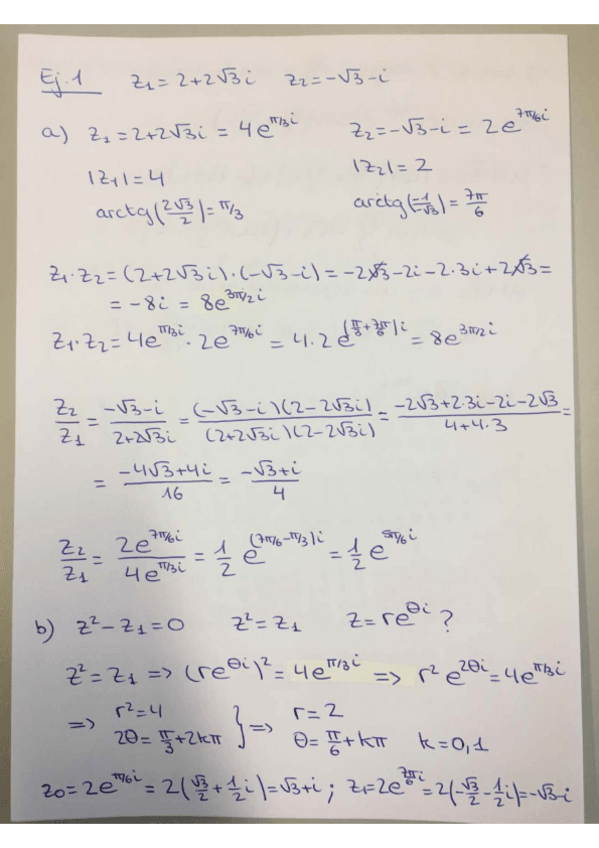 Ej. 1 z₁ = 2+2√3 i z₂ = -√3 - i
a) z₁ = 2+2√3i = 4e^{π/3 i} z₂ = -√3 - i = 2e^{7π/6 i}
|z₁| = 4 |z₂| = 2
arctg(2√3/2) = π/3 arctg(-1/-√3) = 7π/6
z₁·z₂ = (2+2√3i)·(-√3-i) = -2√3 - 2i - 2·3i + 2√3 =
= -8i = 8e^{3π/2 i}
z₁·z₂ = 4e^{π/3 i}·2e^{7π/6 i} = 4·2 e^{(π/3+7π/6)i} = 8e^{3π/2 i}
z₂/z₁ = (-√3-i)/(2+2√3i) = (-√3-i)(2-2√3i)/(2+2√3i)(2-2√3i) = (-2√3+2·3i-2i-2√3)/(4+4·3) =
= (-4√3+4i)/16 = (-√3+i)/4
z₂/z₁ = 2e^{7π/6 i}/4e^{π/3 i} = 1/2 e^{(7π/6-π/3)i} = 1/2 e^{5π/6 i}
b) z² - z₁ = 0 z² = z₁ z = re^{θi} ?
z² = z₁ => (re^{θi})² = 4e^{π/3 i} => r² e^{2θi} = 4e^{π/3 i}
=> r² = 4 } => r = 2
2θ = π/3 + 2kπ θ = π/6 + kπ k = 0, 1
z₀ = 2e^{π/6 i} = 2(√3/2 + 1/2 i) = √3 + i ; z₁ = 2e^{7π/6 i} = 2(-√3/2 - 1/2 i) = -√3 - i